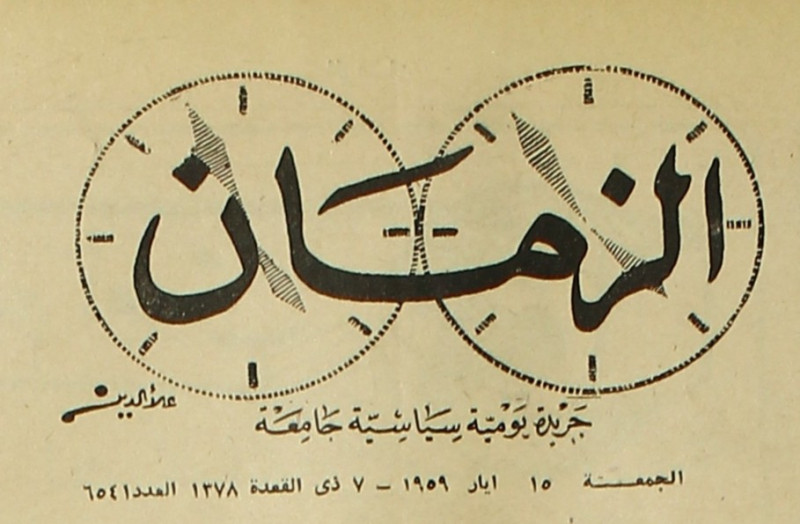 الزمان
علاء الدين
جَريدة يَوميّة سِيَاسِيّة جَامِعَة
الجمعـــة ١٥ ايار ١٩٥٩ - ٧ ذى القعدة ١٣٧٨ العدد ٦٥٤١